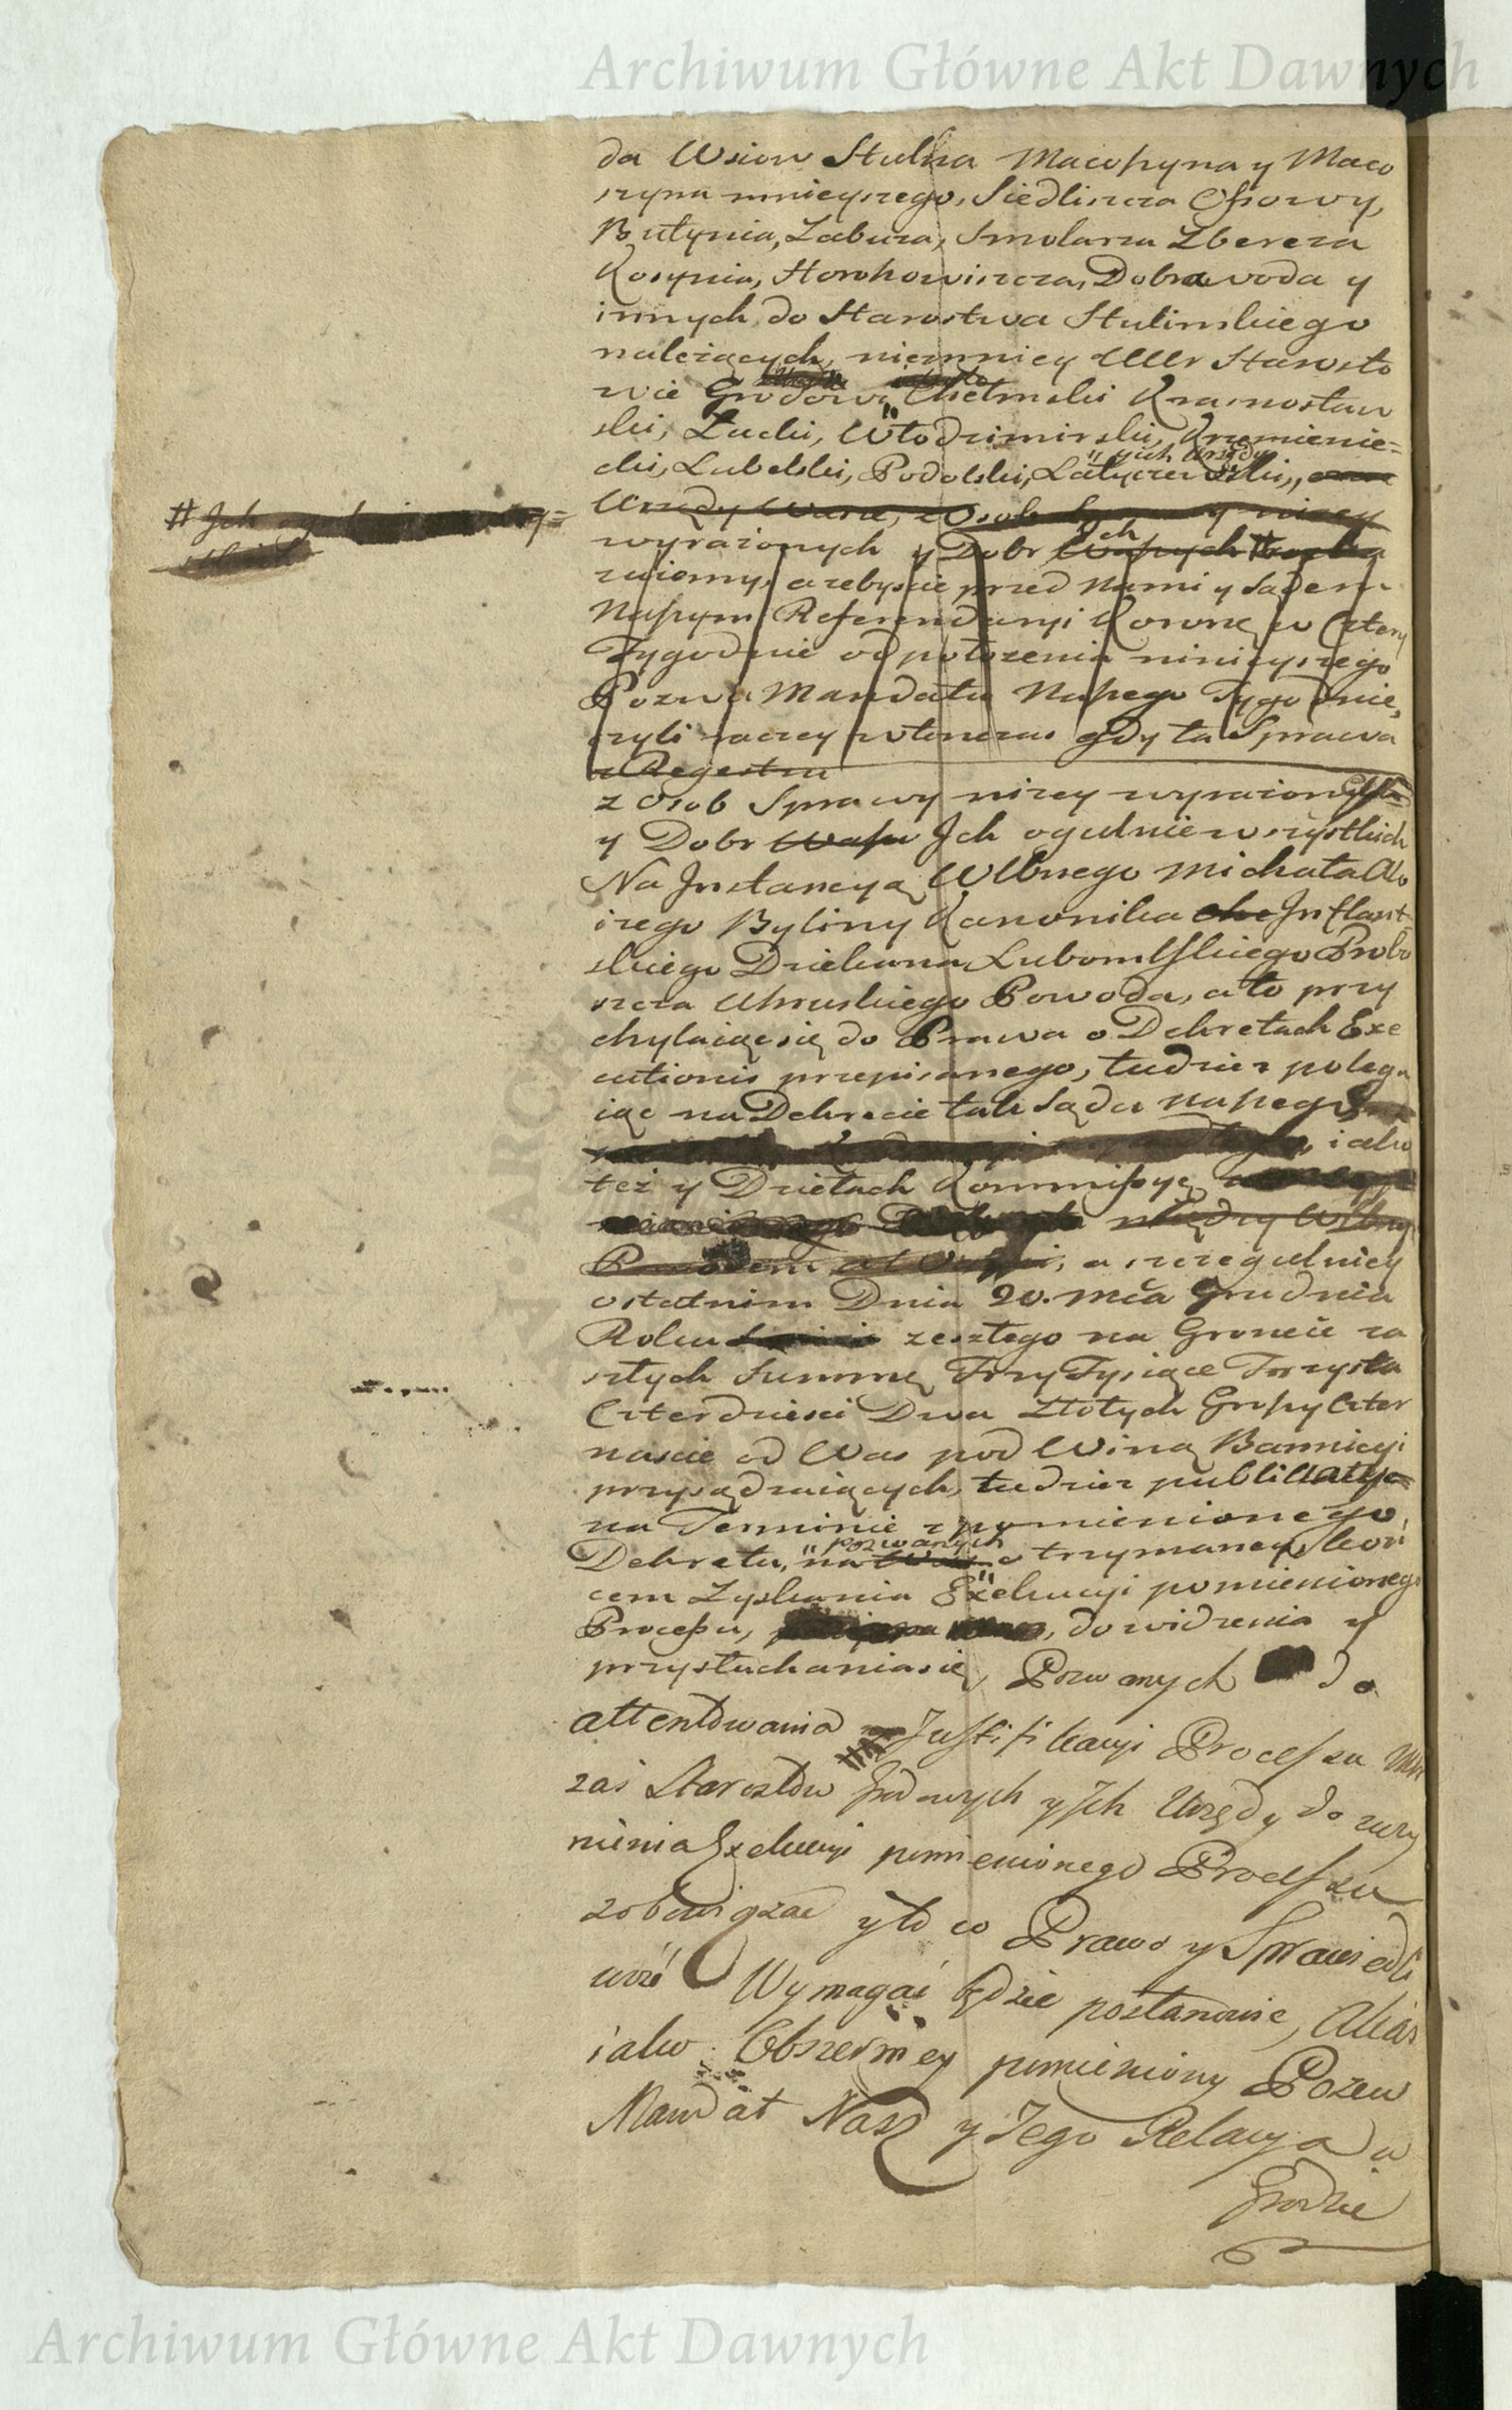 Archiwum Główne Akt Dawnych
da Wsiow Stulna Macoszyna y Maco
szyna mnieyszego, Siedliszcza Ossowy,
Butynia, Zabuza, Smolarza Zbereza
Kosynia, Horohowiszcza, Dobra woda y
innych do Starostwa Stulinskiego
należących, niemniey Starosto
wie Grodowi Chełmski Krasnostaw
ski, Łucki, Włodzimirski, Krzemienie=
cki, Lubelski, Podolski, Latyczewski,
" y ich Urzędy
Urzędy Wasze, z Osob y niżey
# Jch
wyrażonych y Dobr Jch Waszych
zuiemy, ażebyście przed Nami y Sądem
Naszym Referendaryi Koronney w Cztery
Tygodnie od położenia ninieyszego
Pozwu Mandatu Naszego Tygodnie,
czyli raczey wtenczas gdy ta Sprawa
z Regestru
z Osob Sprawy niżey wyrażoney
y Dobr Wasz Jch ogulnie wszystkich
Na Jnstancyą Wlbnego Michała Alo
izego Byliny Kanonika Jnflant
skiego Dziekana Lubomlskiego Probo
szcza Uhruskiego Powoda, a to przy
chylaiąc się do Prawa o Dekretach Exe
cutionis przepisanego, tudzież polega
iąc na Dekrecie tak Sądu Naszego
iako
też y Dziełach Kommissyi
między Wlbny
Powodem a, a szczegulniey
ostatnim Dnia 20. Mca Grudnia
Roku zeszłego na Gruncie za
szłych Summę Trzy Tysiące Trzysta
Czterdzieści Dwa Złotych Groszy Czter
nascie od Was pod Winą Bannicyi
przysądzaiących, tudzież publikacye
na Terminie z pomienionego
Dekretu, " pozwanych na otrzymaney, kon
cem Zyskania Exekucyi pomienionego
Processu, do widzenia y
przysłuchania się, Pozwanych do
attentowania Justifikacyi Processu
zaś Starostow Grodowych y Jch Urzędy do uczy
nienia Exekucyi pomienionego Processu
zobowiązać y to co Prawo y Sprawiedli
wość Wymagać będzie postanowić,
iako Obszerniey pomieniony Pozew
Mandat Nasz y Jego Relacya w
Grodzie
Archiwum Główne Akt Dawnych